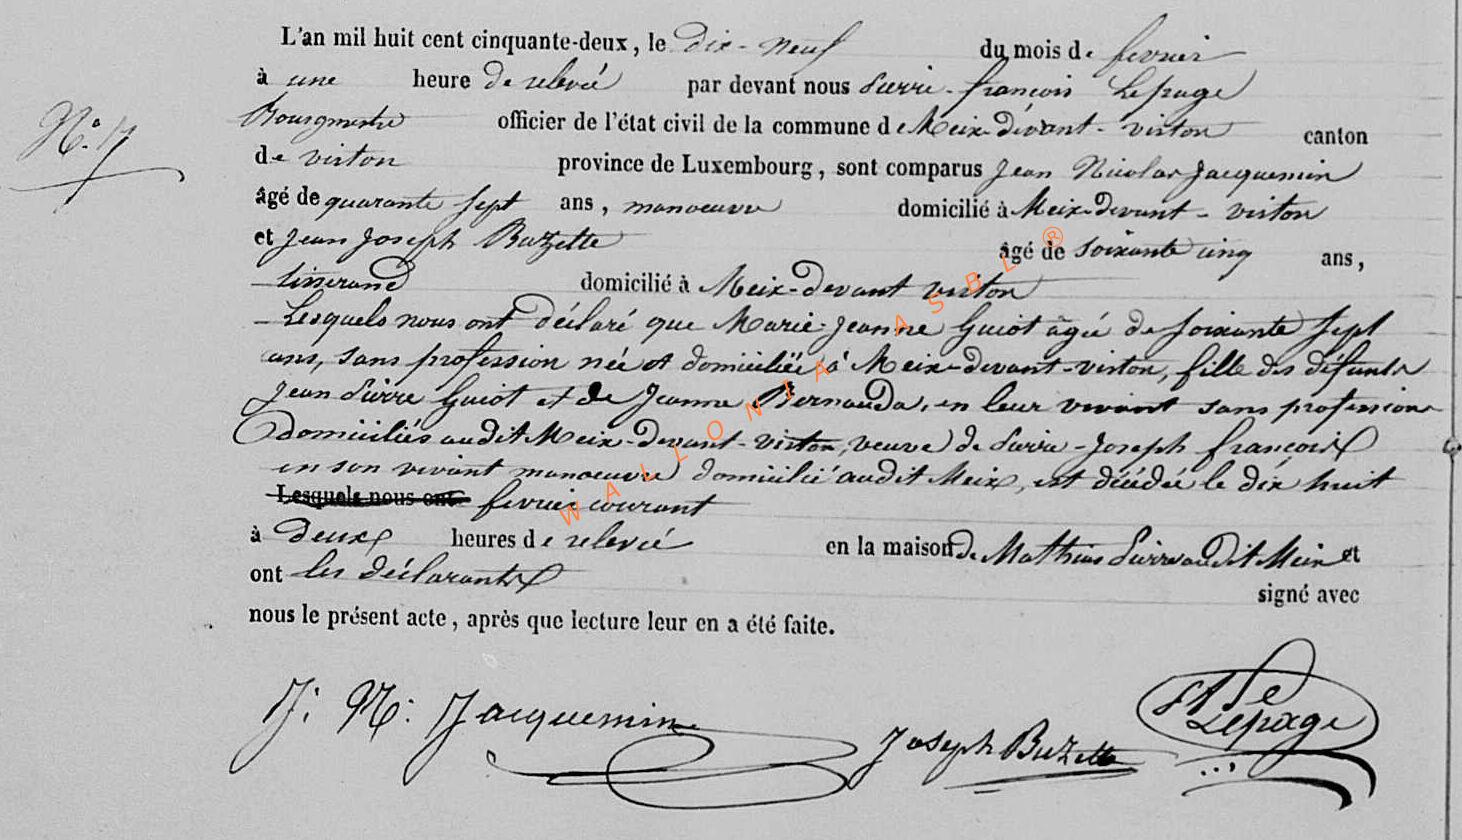 L'an mil huit cent cinquante-deux, le dix-neuf du mois de fevrier
à une heure de relevée par devant nous Pierre-françois Lepage
N.° 17
Bourgmestre officier de l'état civil de la commune de Meix-devant-virton canton
de virton province de Luxembourg, sont comparus Jean Nicolas Jacquemin
âgé de quarante sept ans, manoeuvre domicilié à Meix-devant-virton
et Jean Joseph Buzette âgé de soixante cinq ans,
tisserand domicilié à Meix-devant virton
Lesquels nous ont déclaré que Marie-Jeanne Guiot âgée de soixante sept
ans, sans profession née et domiciliée à Meix-devant-virton, fille des défunts
Jean Pierre Guiot et de Jeanne Bernauda, en leur vivant sans profession
domiciliés audit Meix-devant-virton, veuve de Pierre-Joseph françois
en son vivant manoeuvre domicilié audit Meix, est décédée le dix huit
Lesquels nous ont fevrier courant
à deux heures de relevée en la maison de Mathieu Pierre audit Meix et
ont les déclarants signé avec
nous le présent acte, après que lecture leur en a été faite.
J: N: Jacquemin
Joseph Buzette
Lepage
WALLONIA ASBL ®